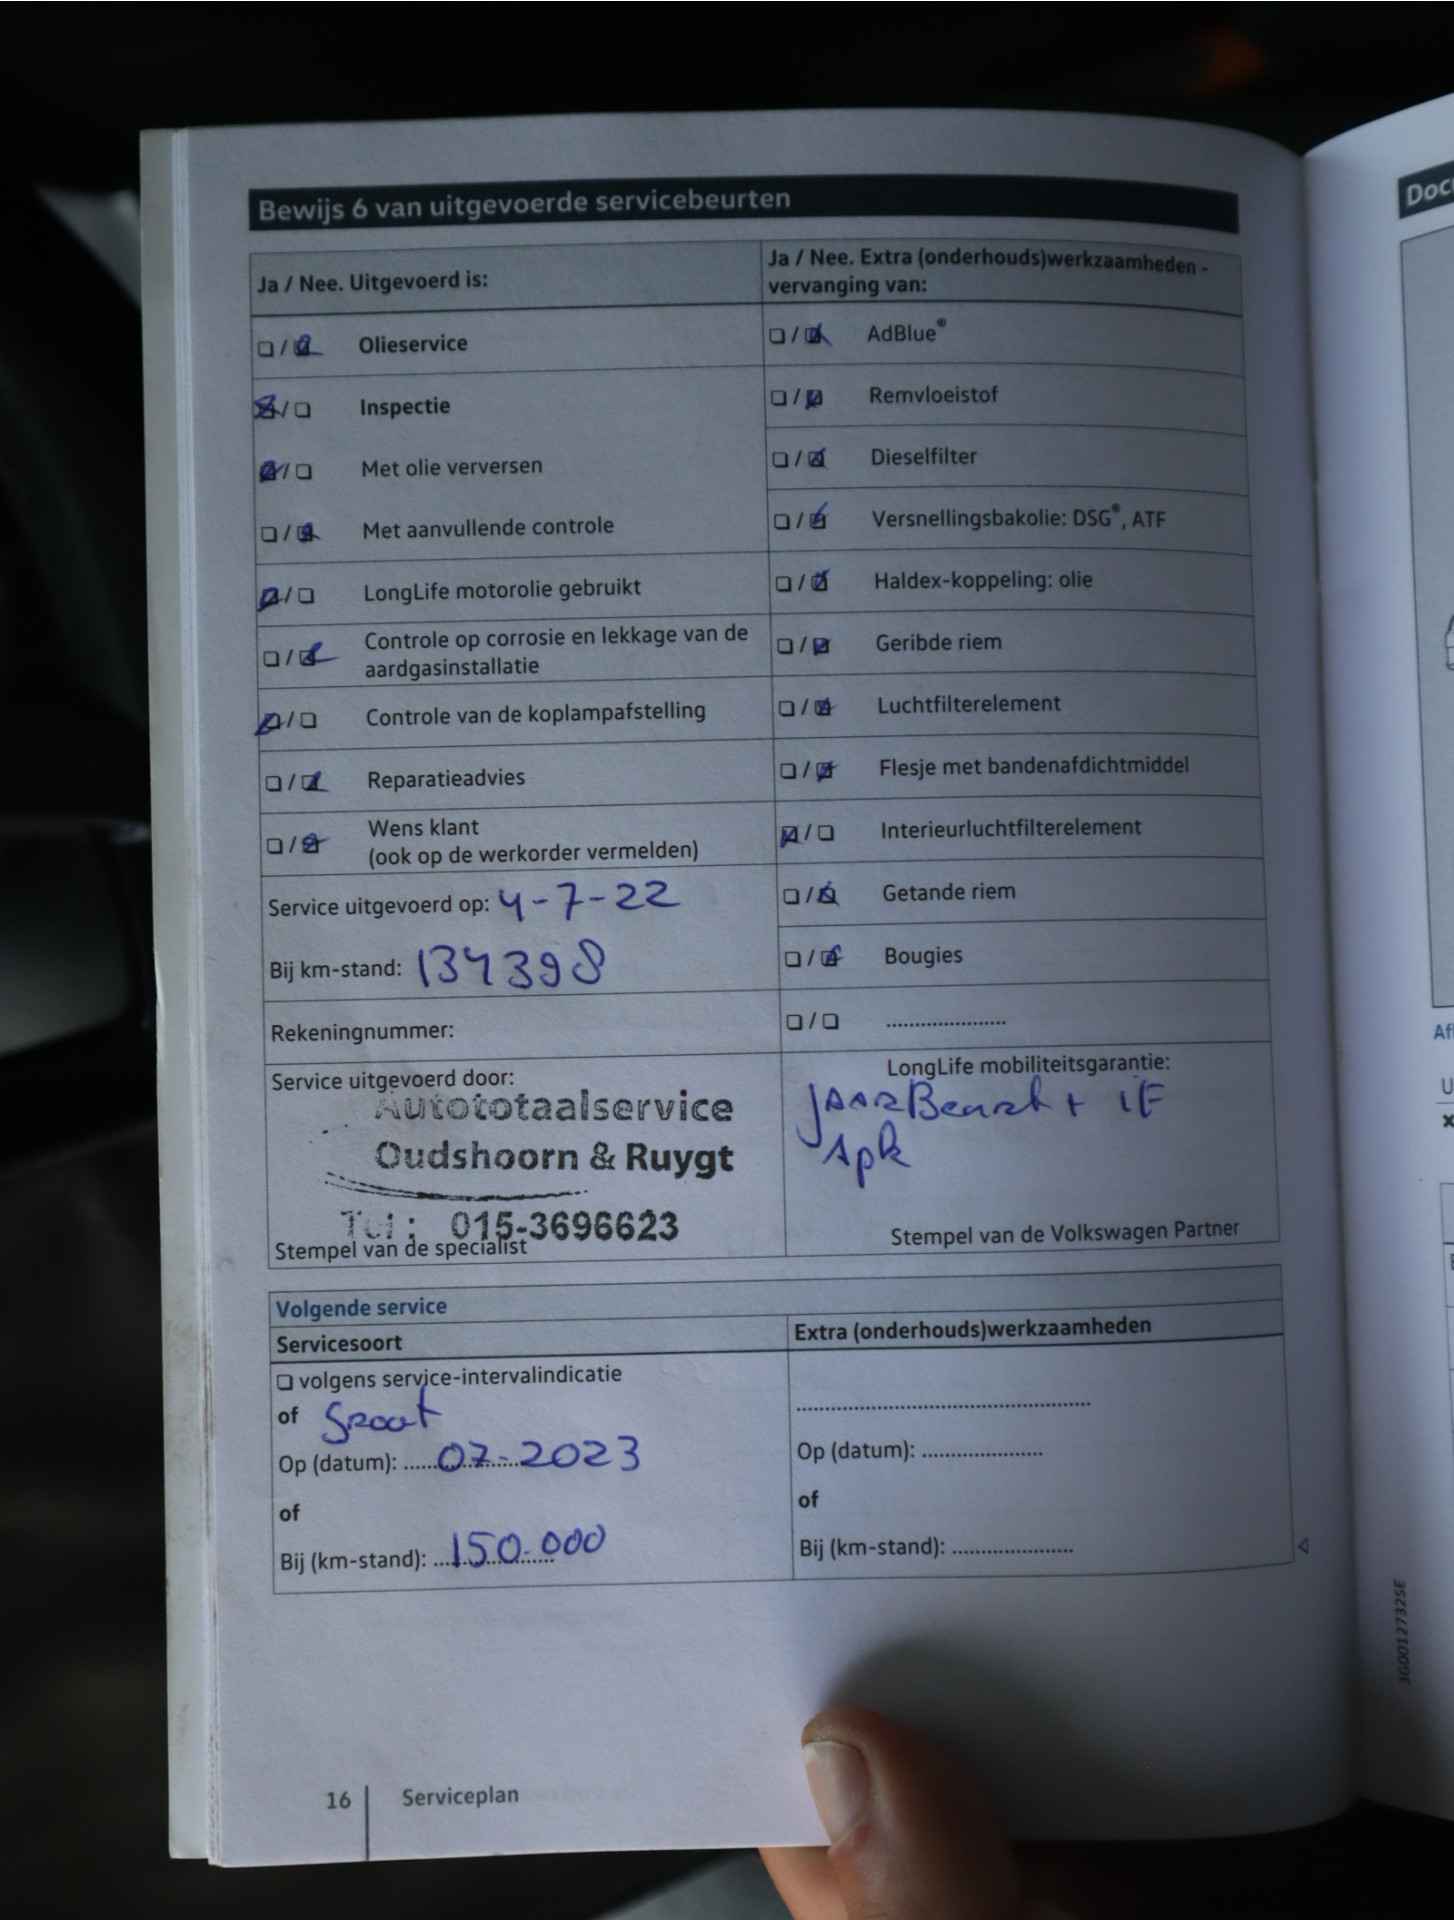 Bewijs 6 van uitgevoerde servicebeurten
Ja / Nee. Uitgevoerd is:
Olieservice
Inspectie
Met olie verversen
Met aanvullende controle
LongLife motorolie gebruikt
Controle op corrosie en lekkage van de
aardgasinstallatie
Controle van de koplampafstelling
Reparatieadvies
Wens klant
(ook op de werkorder vermelden)
Service uitgevoerd op: 4-7-22
Bij km-stand: 134398
Rekeningnummer:
Service uitgevoerd door:
Autototaalservice
Oudshoorn & Ruygt
Tel: 015-3696623
Stempel van de specialist
Ja / Nee. Extra (onderhouds)werkzaamheden -
vervanging van:
AdBlue®
Remvloeistof
Dieselfilter
Versnellingsbakolie: DSG®, ATF
Haldex-koppeling: olie
Geribde riem
Luchtfilterelement
Flesje met bandenafdichtmiddel
Interieurluchtfilterelement
Getande riem
Bougies
.....................
LongLife mobiliteitsgarantie:
JAARBeurt + IF
Apk
Stempel van de Volkswagen Partner
Volgende service
Servicesoort
volgens service-intervalindicatie
of Groot
Op (datum): 07-2023
of
Bij (km-stand): 150.000
Extra (onderhouds)werkzaamheden
Op (datum): .....................
of
Bij (km-stand): .....................
16 Serviceplan
3G0012732SE
Doc
Af
U